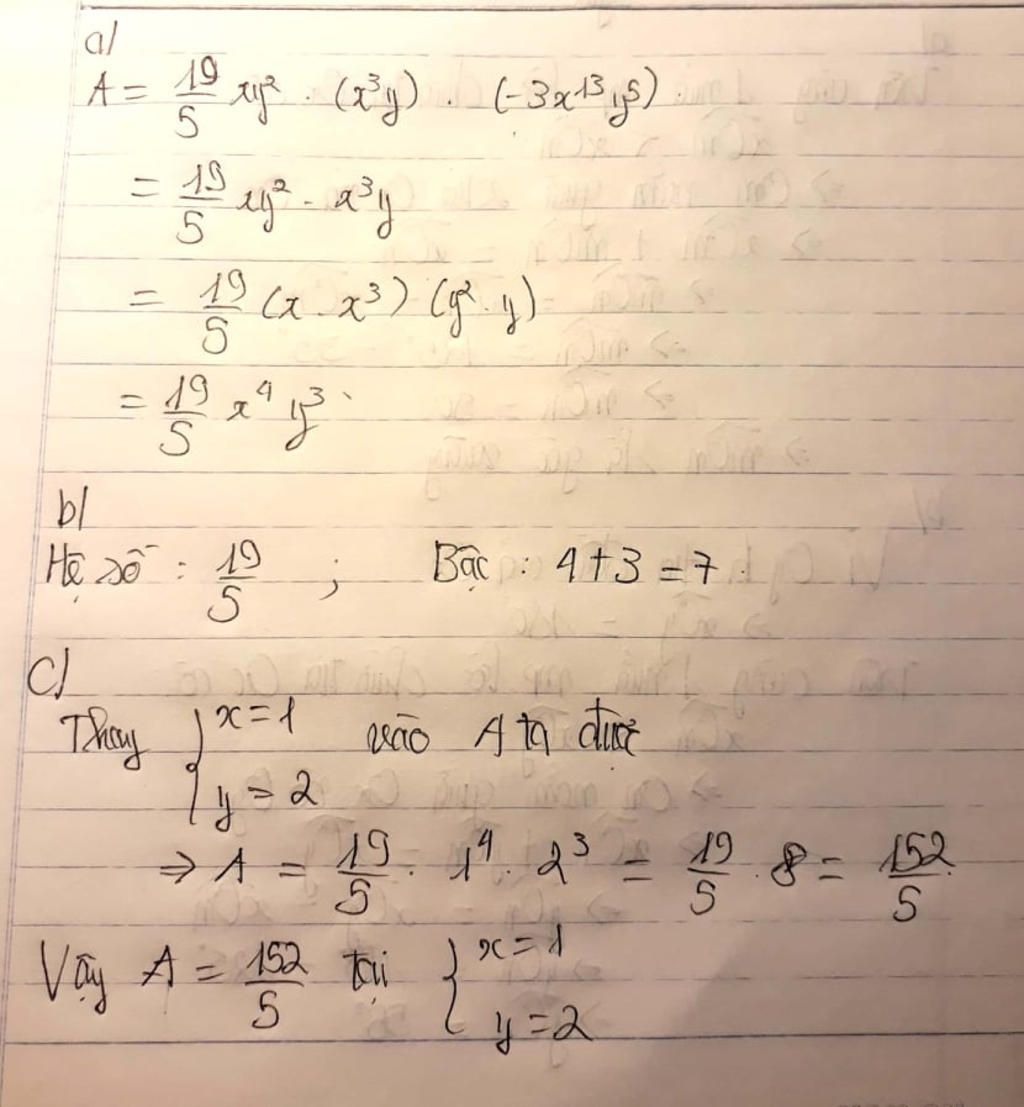 a/
A = 19/5 xy² . (x³y) . (-3x¹³y⁵)
= 19/5 xy² . x³y
= 19/5 (x . x³) (y² . y)
= 19/5 x⁴ y³.
b/
Hệ số : 19/5 ; Bậc : 4+3 = 7.
c/
Thay { x = 1 vào A ta được
y = 2
⇒ A = 19/5 . 1⁴ . 2³ = 19/5 . 8 = 152/5.
Vậy A = 152/5 tại { x = 1
y = 2